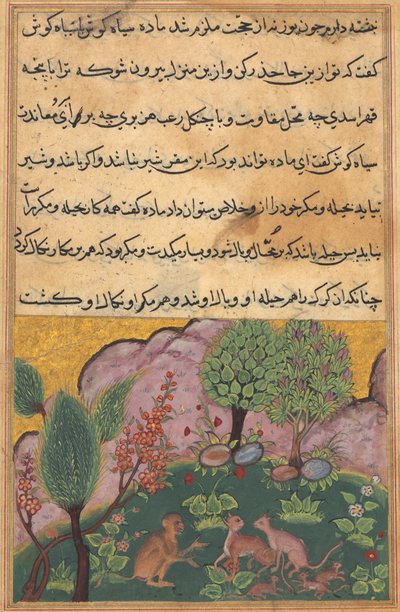 چون بوزنه از حجت ملزم شد ماده سیاه کوش با سیاه کوش
کفت که تو ازین جا حذر کن و ازین منزل بیرون شو که ترا با پنجه
قهر اسدی چه محل مقاومت و با چنکل رعب هزبری چه معاندت
سیاه کوش کفت ای ماده تواند بود که این مقر شیر نباشد و اکر باشد و شیر
بیاید بحیله و مکر خود را ازو خلاص توان داد ماده کفت همه کار بحیله و مکر راست
نیاید بس حیله باشد که بر محتال وبال شود و بسیار مکیدت و مکر بود که هم بر مکار نکال کردد
چنانکه ان کرک را هم حیله او وبال او شد و هم مکر او نکال او کشت